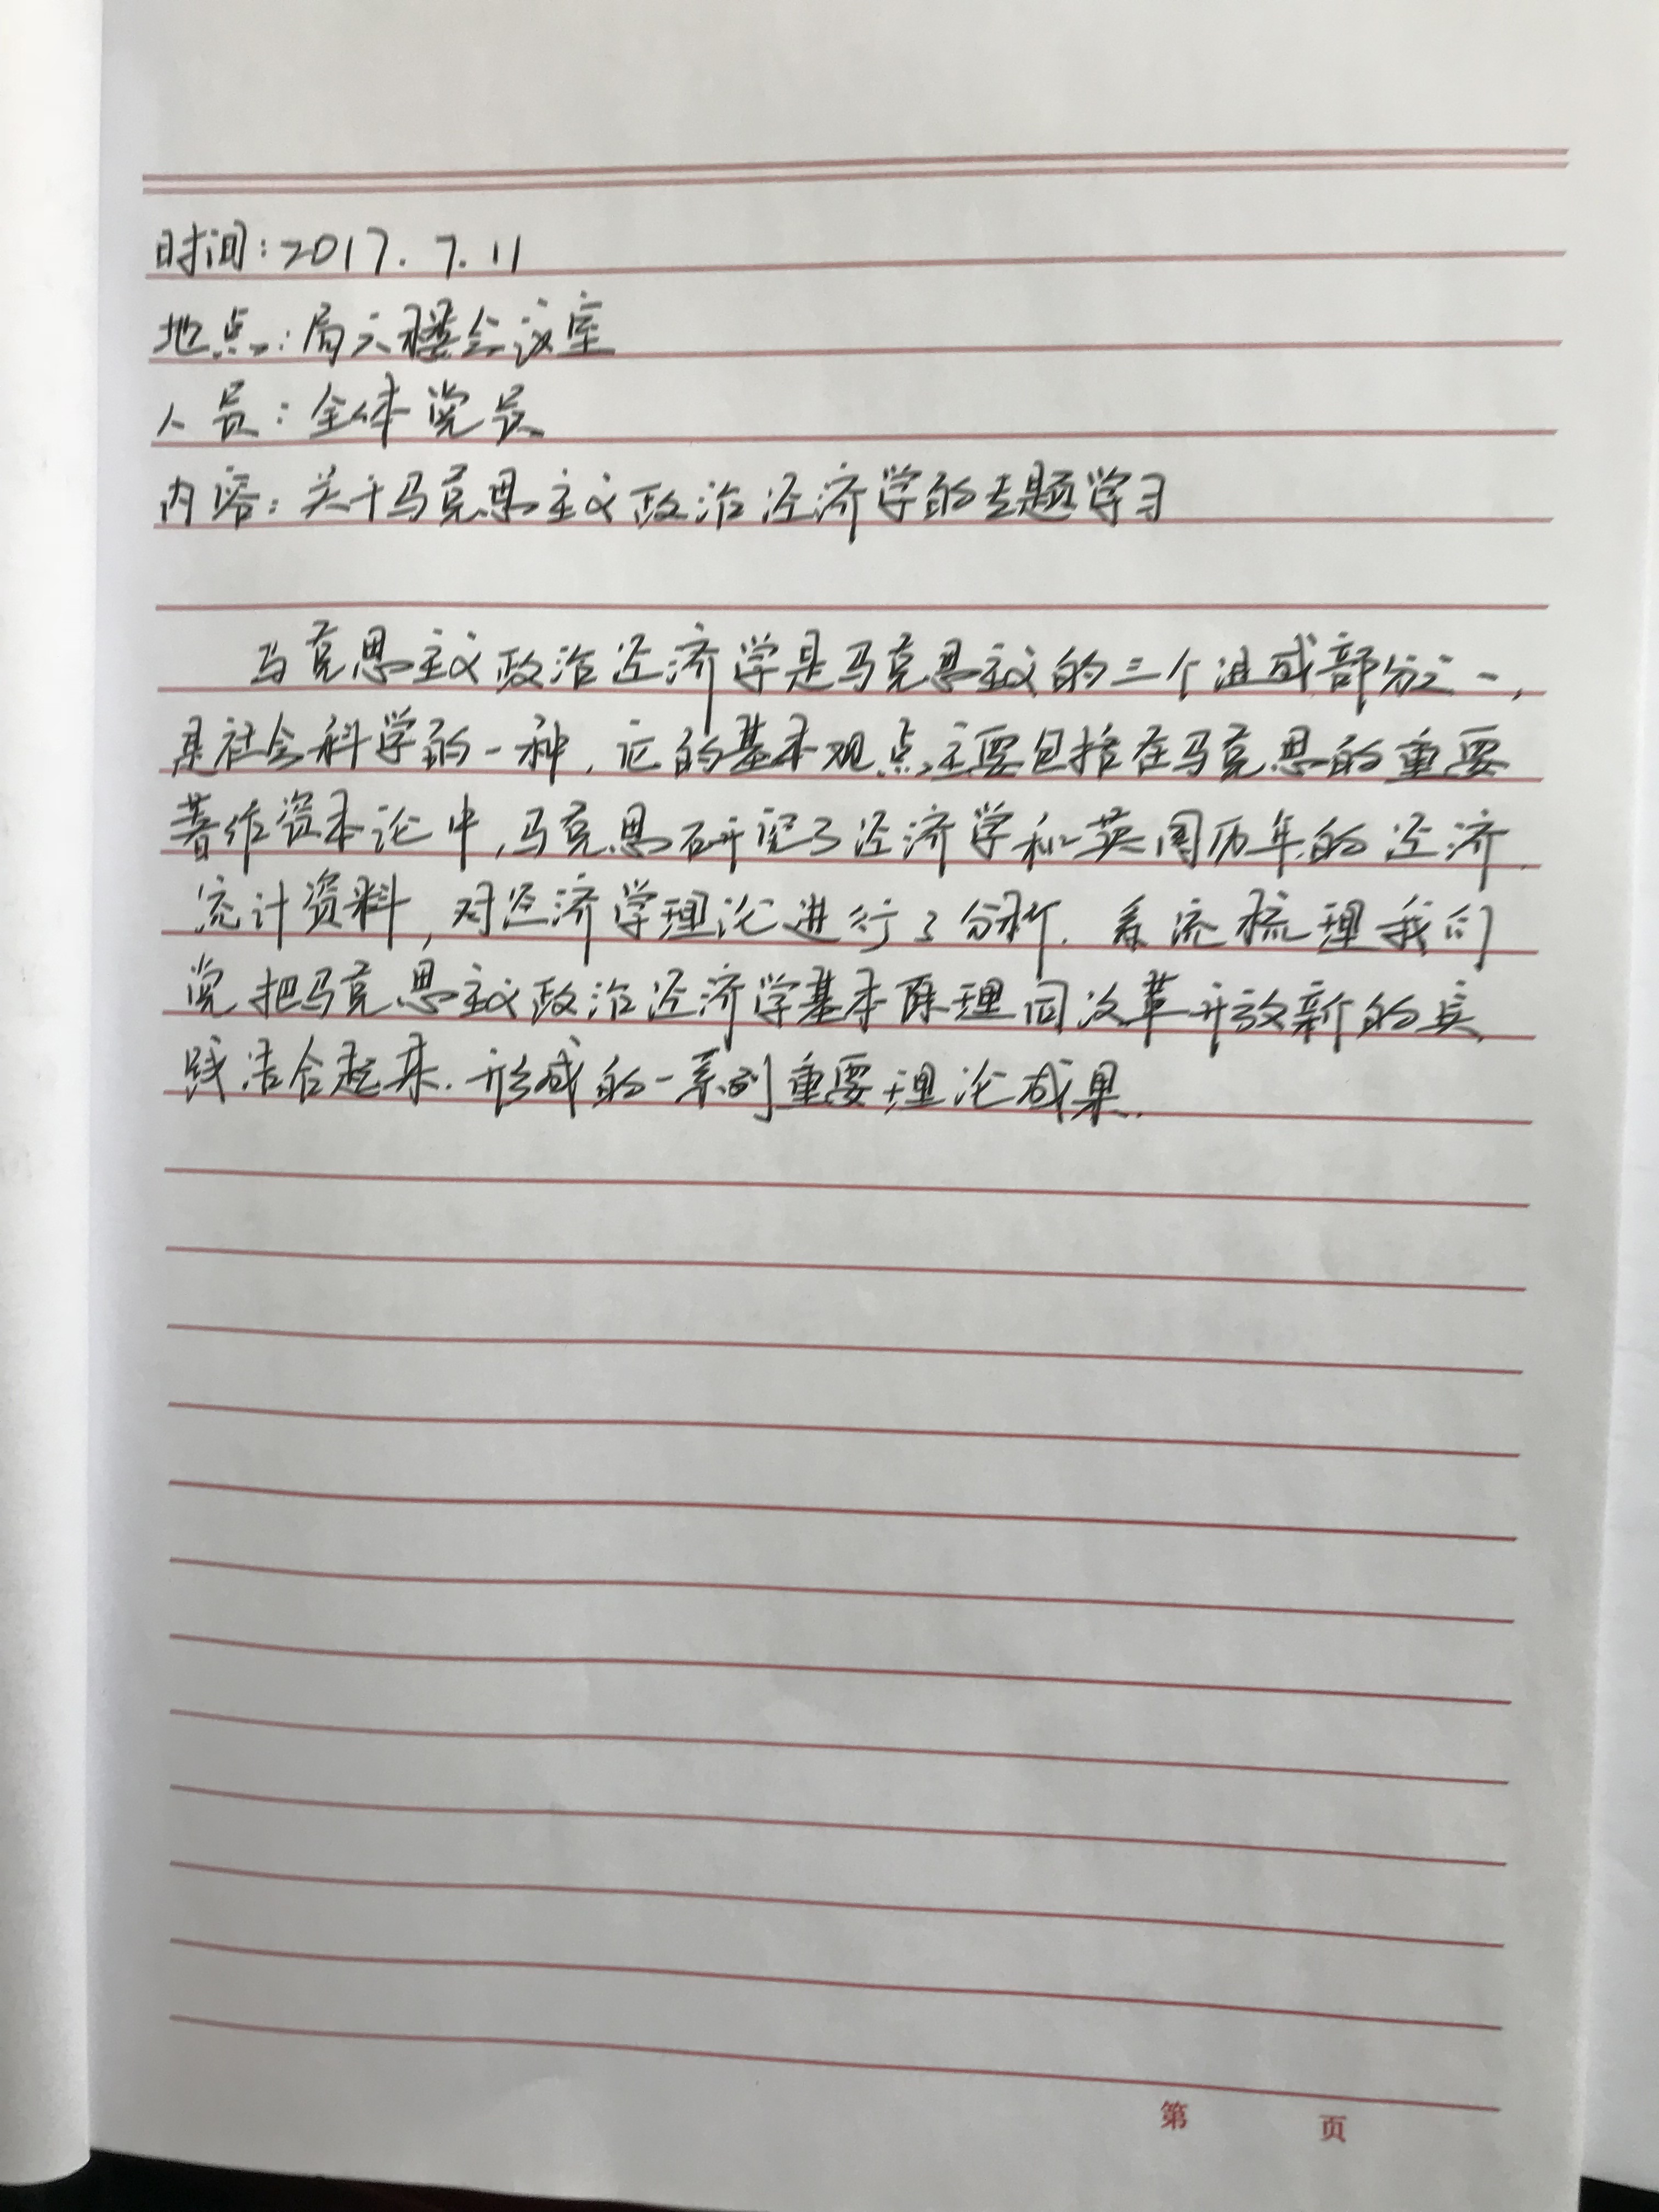 时间:2017.7.11
地点:局六楼会议室
人员:全体党员
内容:关于马克思主义政治经济学的专题学习
马克思主义政治经济学是马克思主义的三个组成部分之一,
是社会科学的一种,它的基本观点主要包括在马克思的重要
著作资本论中,马克思研究了经济学和英国历年的经济
统计资料,对经济学理论进行了分析.系统梳理我们
党把马克思主义政治经济学基本原理同改革开放新的实
践结合起来.形成的一系列重要理论成果.
第 页